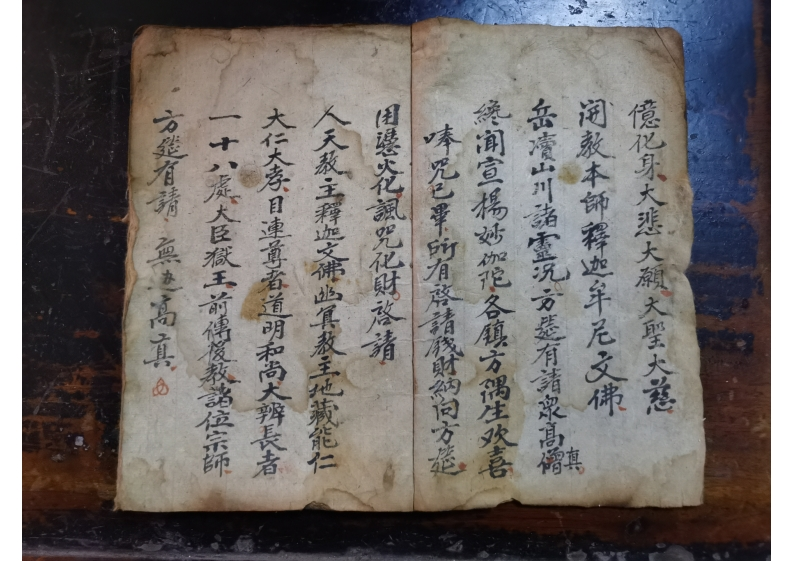 億化身大悲大願大聖大慈
開教本師釋迦牟尼文佛
岳瀆山川諸靈況方筵有請眾高僧真
纔聞宣揚妙伽陀各鎮方偶生欢喜
唪咒已畢所有啓請錢財納向方筵
用憑火化諷咒化財啓請
人天教主釋迦文佛幽冥教主地藏能仁
大仁大孝目連尊者道明和尚大辨長者
一十八處大臣獄王前傳後教諸位宗師
方筵有請 無邊高真